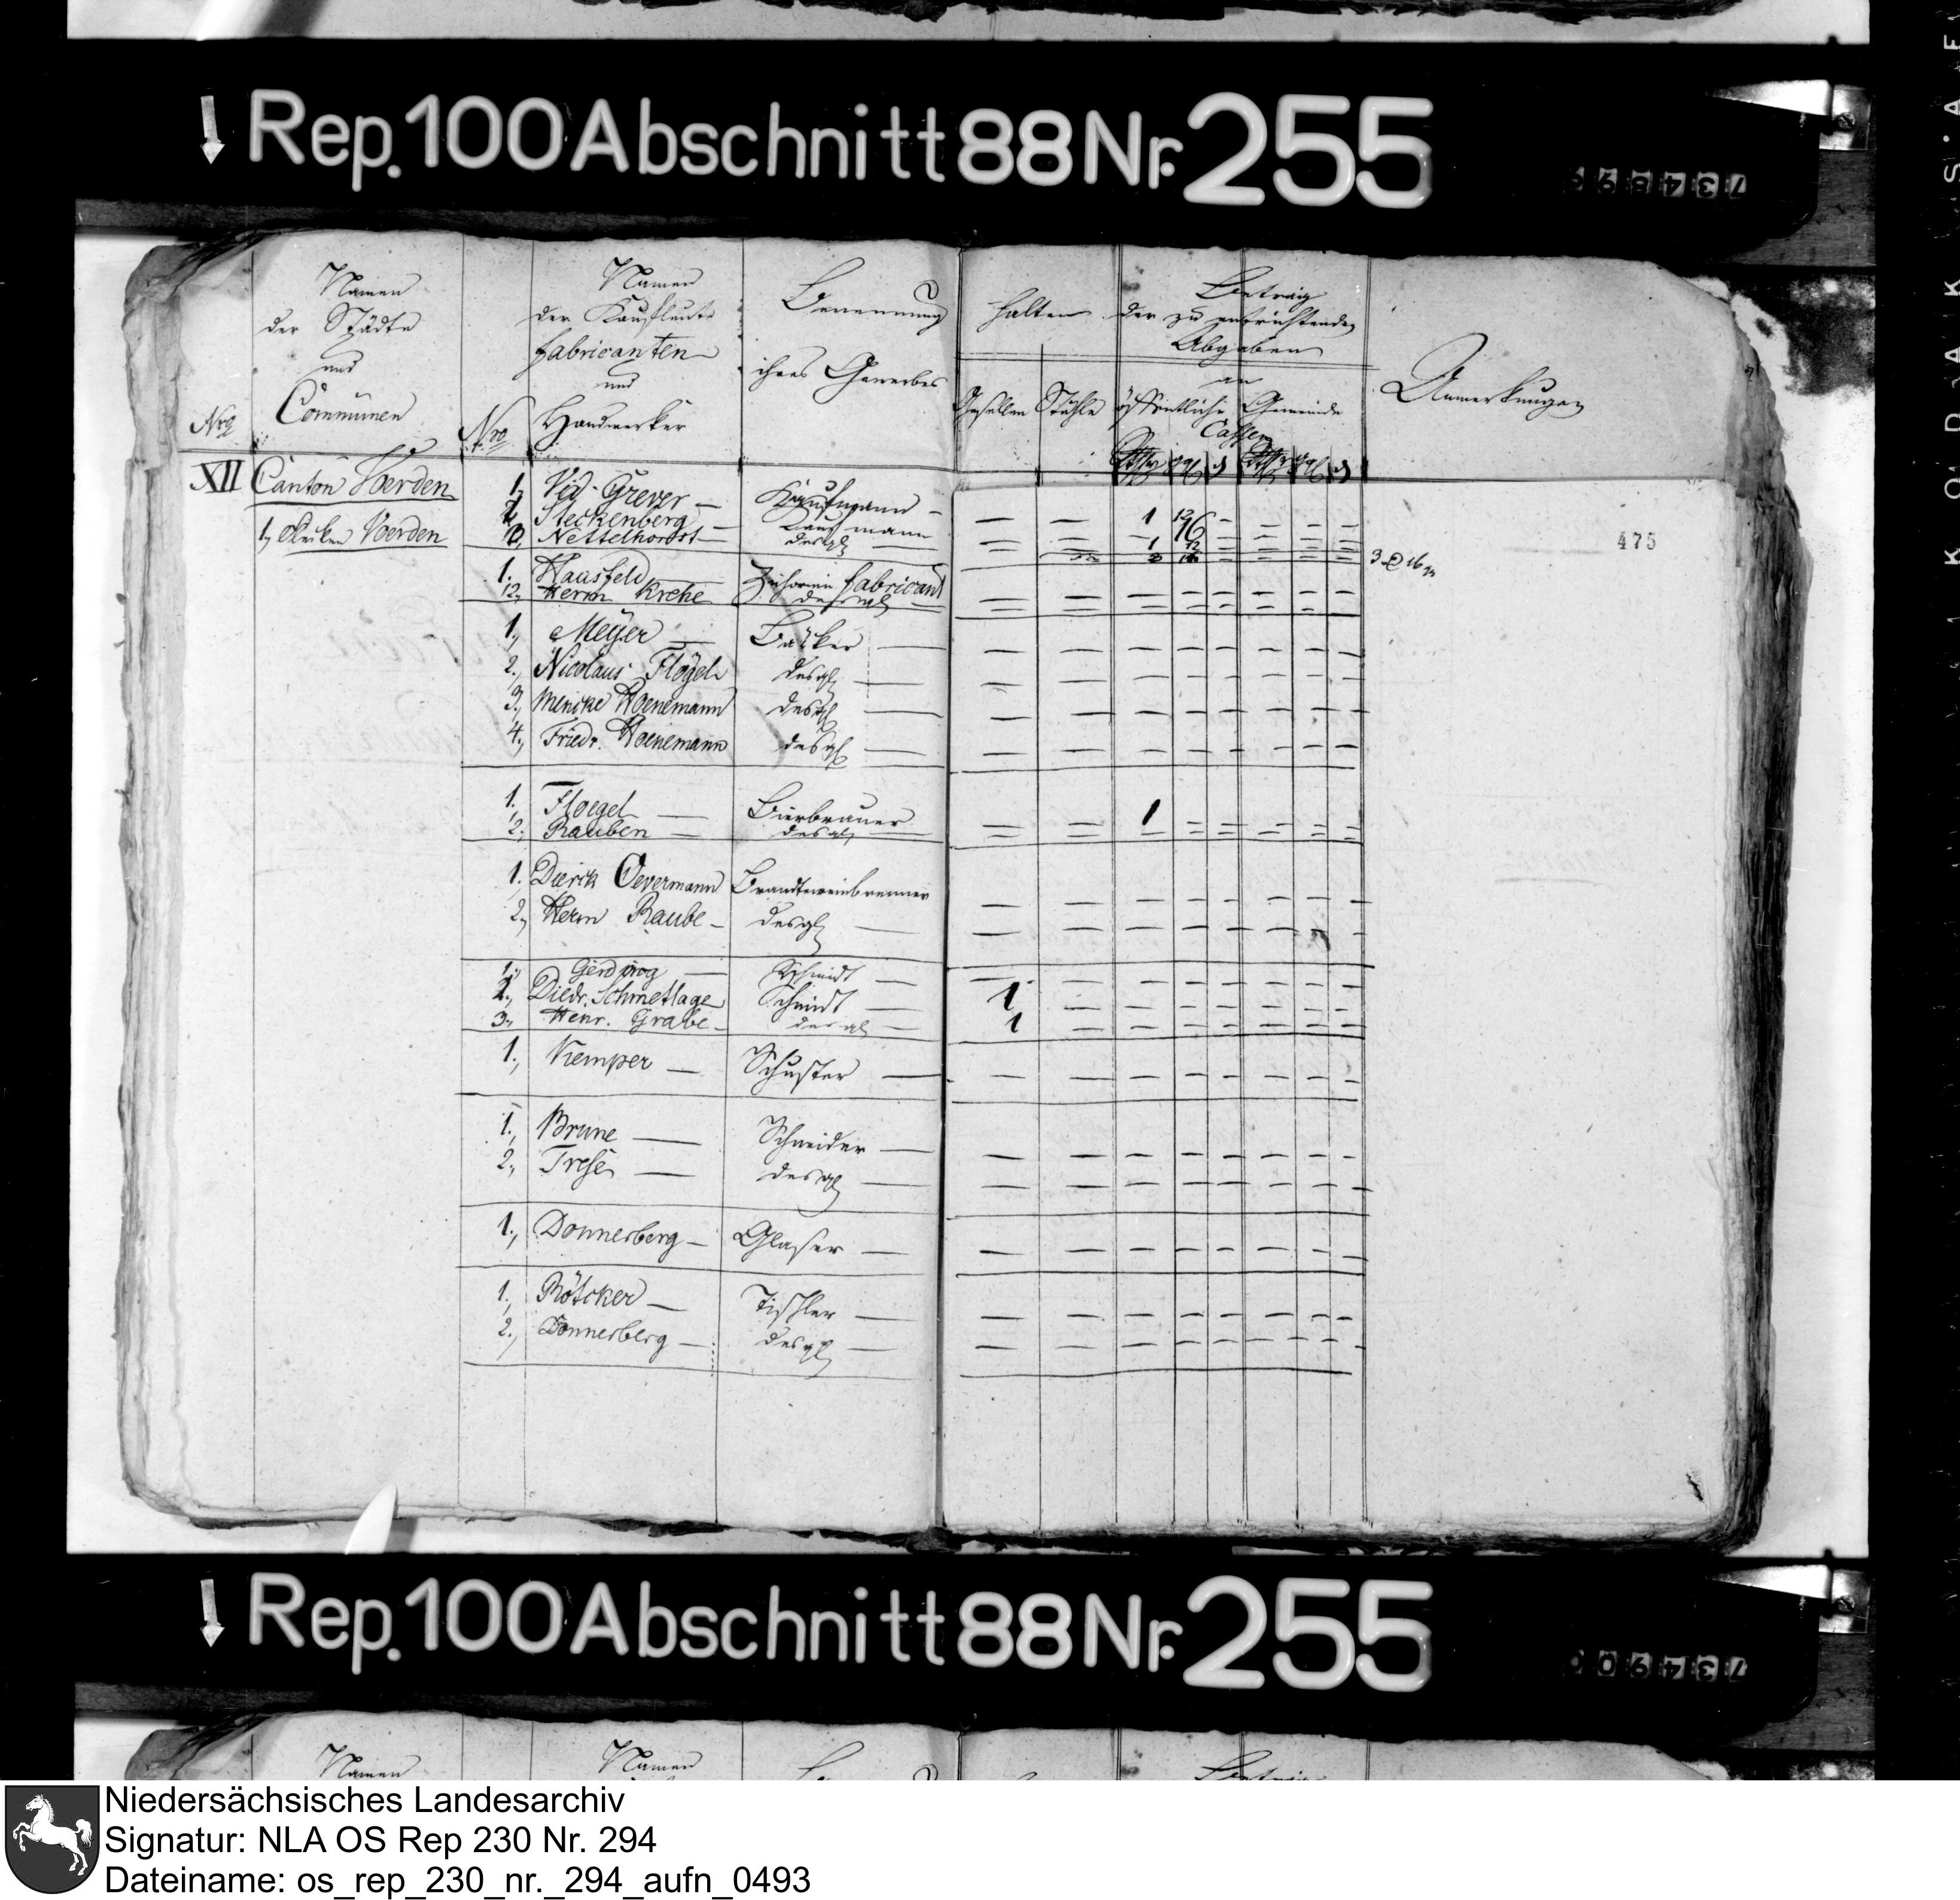 Rep. 100 Abschnitt 88 Nr. 255
Nro
Namen
der Städte
und
Communen
Nro
Namen
der Kaufleute
fabricanten
und
Handwerker
Benennung
ihres Gewerbes
halten
Gesellen Stühle
Betrag
der zu entrichtenden
Abgaben
an
öffentliche Gemeinde
Cassen
Anmerkungen
475
XII Canton Voerden
1, Flecken Voerden
1, Grever — Kaufmann —
Steckenberg — Kaufmann 1 12
Nettelhorst — desgl 16
1. Haasfeld fabricant
2, Herm Krehe desgl
1, Meyer — Bäcker —
2, Nicolaus Flögel desgl —
3, Mencke Hoenemann desgl —
4, Friedr. Hoenemann desgl —
1, Floegel — Bierbrauer 1
2, Rauben — desgl —
1. Dierik Oevermann Brandteweinbrenner
2, Herm Raube — desgl —
1, Gerding — Schmidt —
2, Diedr. Schmetlage Schmidt — 1
3, Henr. Grabe — desgl — 1
1, Kemper — Schuster —
1, Brune — Schneider —
2, Trese — desgl —
1, Donnerberg — Glaser —
1, Rötcker — Tischler —
2, Donnerberg — desgl —
Rep. 100 Abschnitt 88 Nr. 255
Namen
Namen
Niedersächsisches Landesarchiv
Signatur: NLA OS Rep 230 Nr. 294
Dateiname: os_rep_230_nr._294_aufn_0493